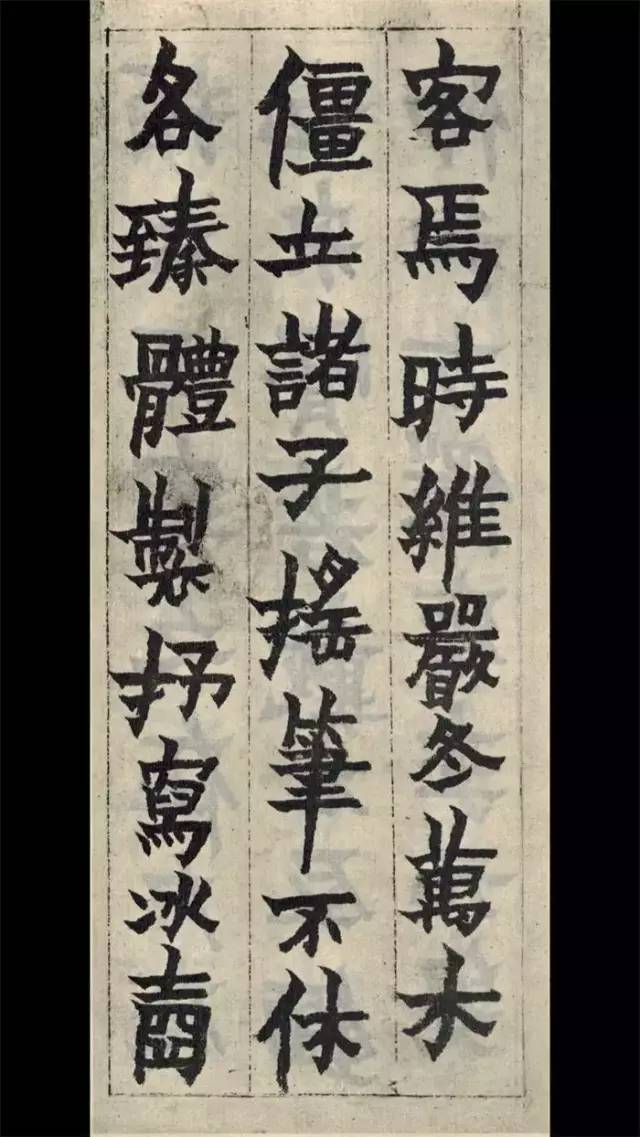 客焉時維嚴冬萬木
僵立諸子搖筆不休
各臻體製抒寫冰